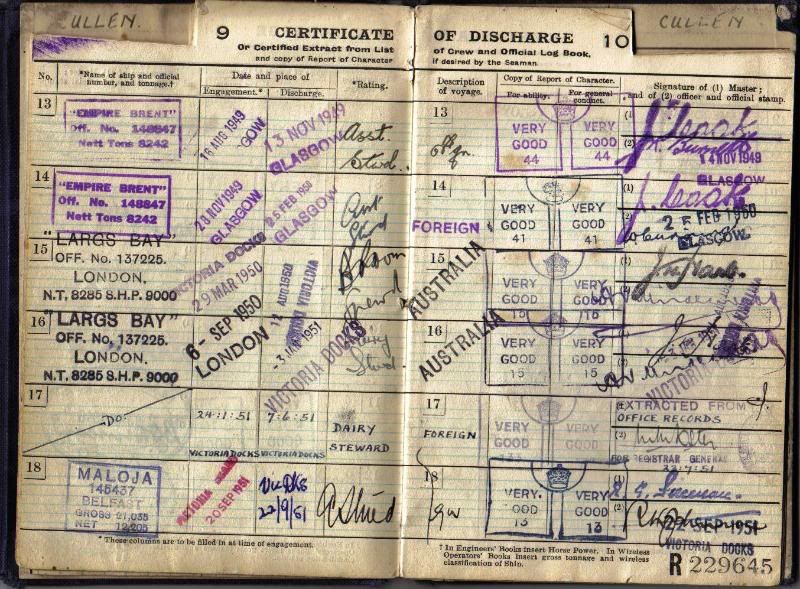 CULLEN
CULLEN
9 CERTIFICATE
Or Certified Extract from List
and copy of Report of Character
OF DISCHARGE 10
of Crew and Official Log Book,
if desired by the Seaman.
No.
*Name of ship and official number, and tonnage.†
Date and place of
Engagement.*
Discharge.
*Rating.
Description of voyage.
Copy of Report of Character.
For ability.
For general conduct.
Signature of (1) Master;
and of (2) officer and official stamp.
13
"EMPIRE BRENT"
Off. No. 148847
Nett Tons 8242
16 AUG 1949
GOW
13 NOV 1949
GLASGOW
Asst.
Stwd.
13
VERY GOOD 44
VERY GOOD 44
(1)
(2)
14 NOV 1949
GLASGOW
14
"EMPIRE BRENT"
Off. No. 148847
Nett Tons 8242
28 NOV 1949
GLASGOW
25 FEB 1950
GLASGOW
14
FOREIGN
VERY GOOD 41
VERY GOOD 41
(1)
(2)
25 FEB 1950
GLASGOW
15
"LARGS BAY"
OFF. No. 137225.
LONDON.
N.T. 8285 S.H.P. 9000
VICTORIA DOCKS
29 MAR 1950
AUG 1950
VICTORIA DOCKS
15
AUSTRALIA
VERY GOOD 15
VERY GOOD 15
16
"LARGS BAY"
OFF. No. 137225.
LONDON.
N.T. 8285 S.H.P. 9000
6- SEP 1950
LONDON
-3 JAN 1951
VICTORIA DOCKS
Stwd.
16
AUSTRALIA
VERY GOOD 15
VERY GOOD 15
VICTORIA DOCKS
17
-Do-
24:1:51
VICTORIA DOCKS
7:6:51
VICTORIA DOCKS
DAIRY
STEWARD
17
FOREIGN
VERY GOOD
VERY GOOD
EXTRACTED FROM
OFFICE RECORDS
(2)
FOR REGISTRAR GENERAL
18
MALOJA
145437
BELFAST
GROSS 21,035
NET 12,205
20 SEP 1951
Vic Dks
22/9/51
18
VERY GOOD 13
VERY GOOD 13
(1)
(2)
22 SEP 1951
VICTORIA DOCKS
* These columns are to be filled in at time of engagement.
† In Engineers' Books insert Horse Power. In Wireless
Operators' Books insert gross tonnage and wireless
classification of Ship.
R 229645